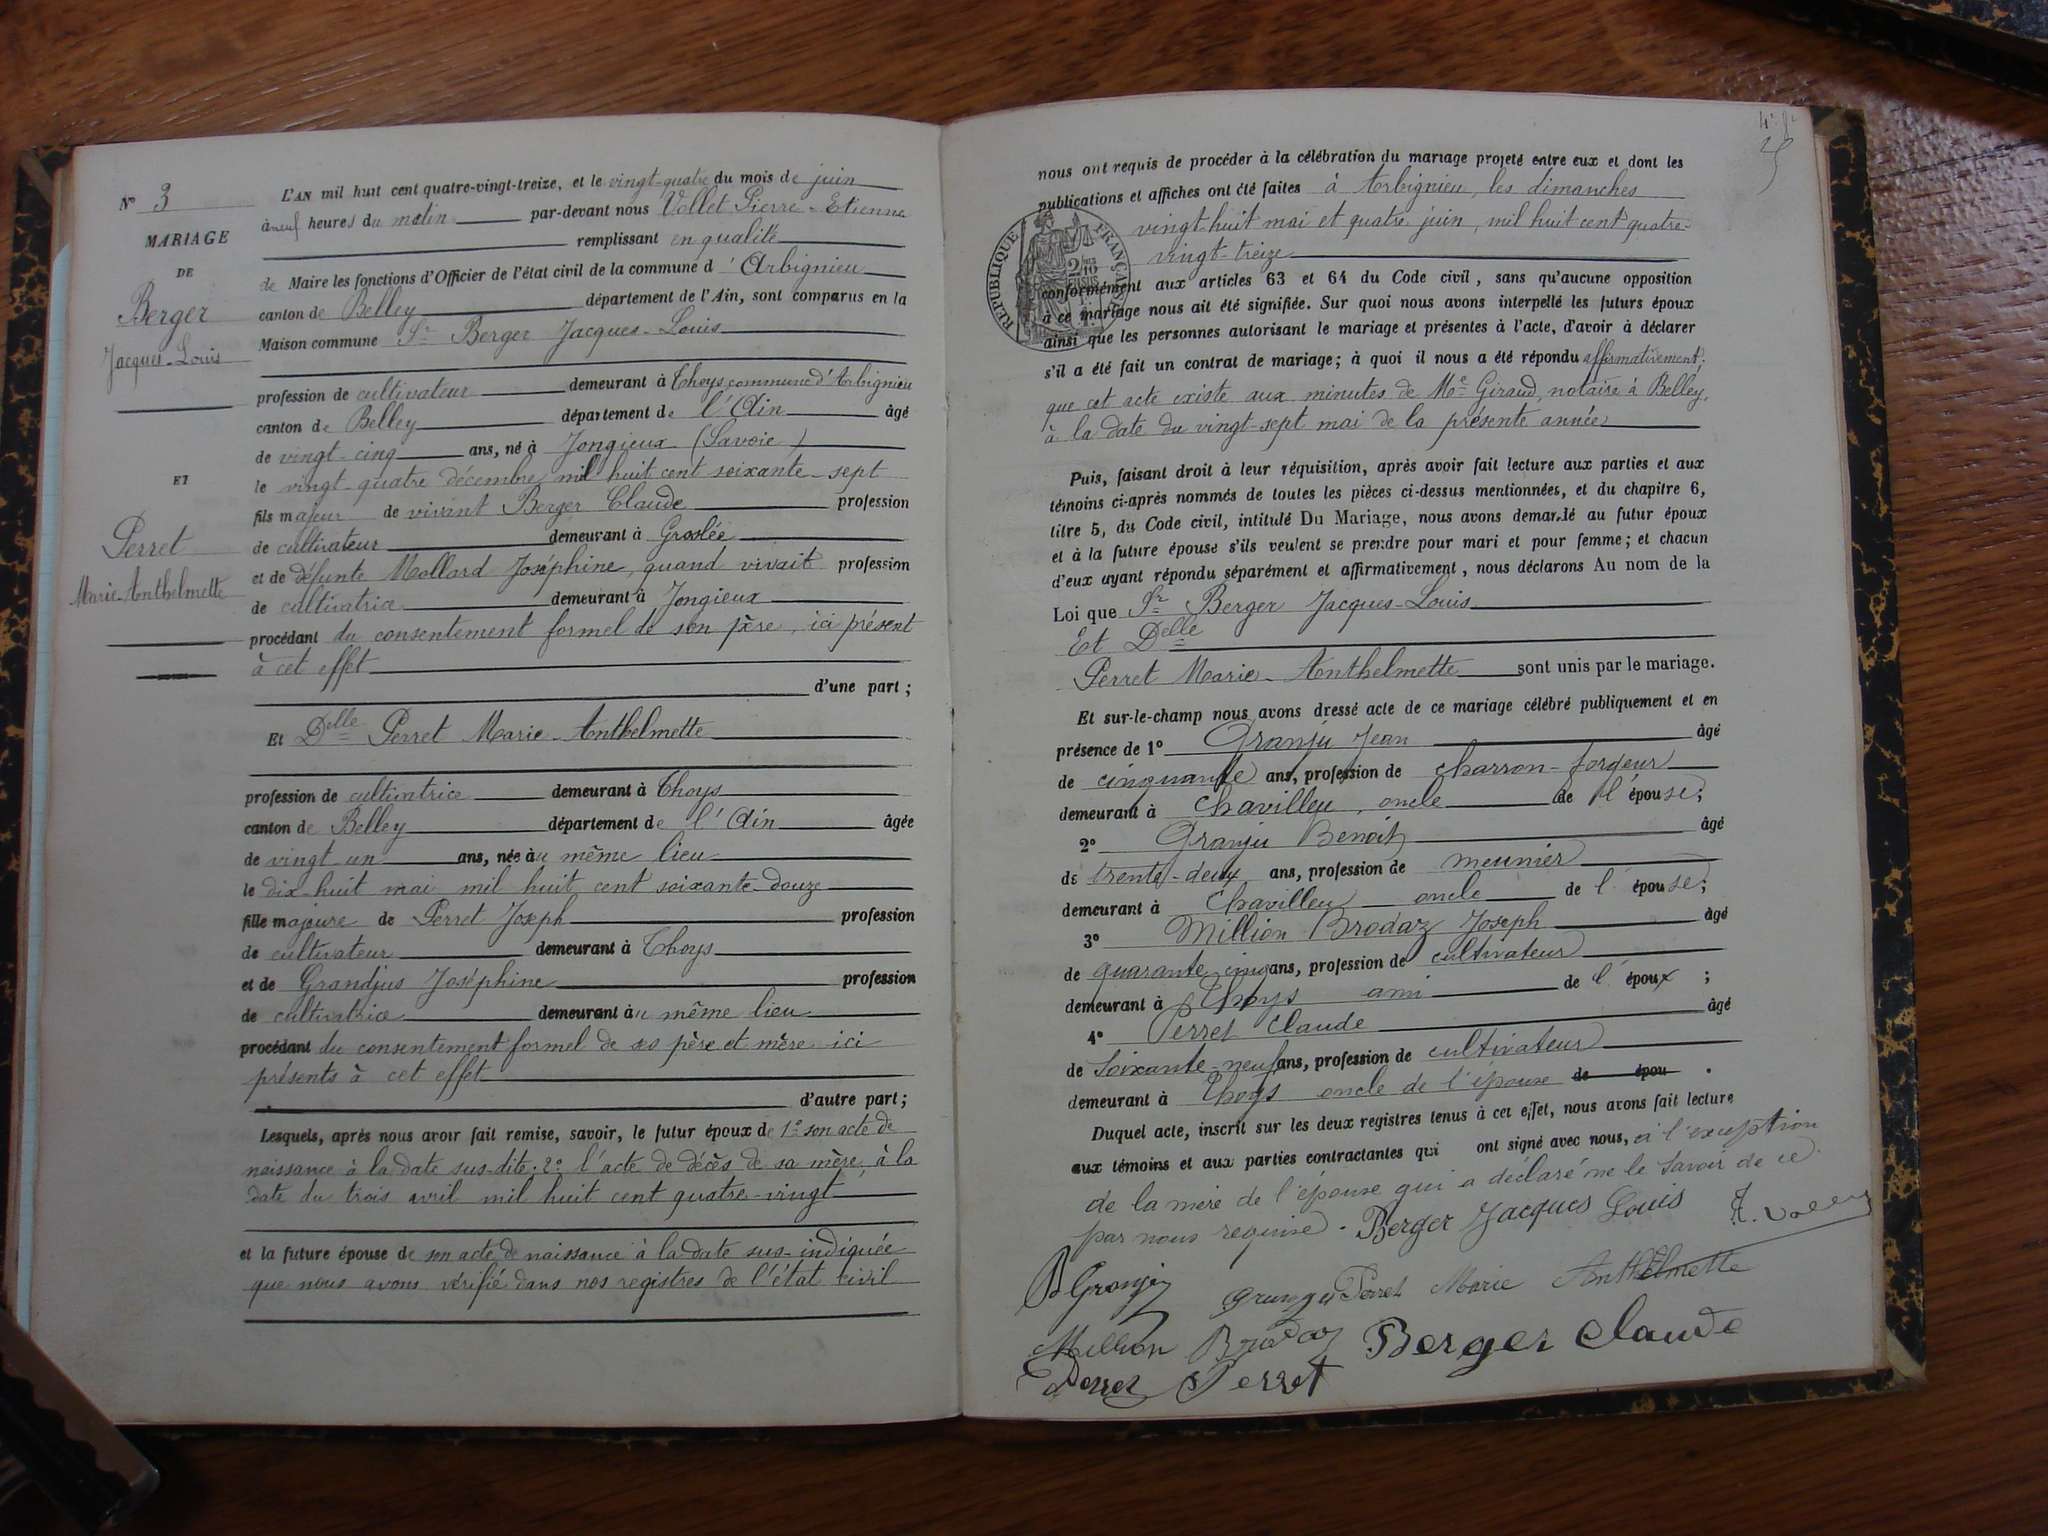 N° 3
MARIAGE
DE
Berger
Jacques-Louis
ET
Perret
Marie-Anthelmette
L'AN mil huit cent quatre-vingt-treize, et le vingt-quatre du mois de juin
à neuf heures du matin par-devant nous Vollet Pierre-Etienne
remplissant en qualité
de Maire les fonctions d'Officier de l'état civil de la commune d'Arbignieu
canton de Belley département de l'Ain, sont comparus en la
Maison commune Sr Berger Jacques-Louis
profession de cultivateur demeurant à Thoys commune d'Arbignieu
canton de Belley département de l'Ain âgé
de vingt-cinq ans, né à Jongieux (Savoie)
le vingt-quatre décembre mil huit cent soixante-sept
fils majeur de vivant Berger Claude profession
de cultivateur demeurant à Groslée
et de défunte Mollard Joséphine, quand vivait profession
de cultivatrice demeurant à Jongieux
procédant du consentement formel de son père, ici présent
à cet effet
d'une part ;
Et Delle Perret Marie-Anthelmette
profession de cultivatrice demeurant à Thoys
canton de Belley département de l'Ain âgée
de vingt un ans, née au même lieu
le dix-huit mai mil huit cent soixante-douze
fille majeure de Perret Joseph profession
de cultivateur demeurant à Thoys
et de Grandjus Joséphine profession
de cultivatrice demeurant au même lieu
procédant du consentement formel de ses père et mère ici
présents à cet effet
d'autre part ;
Lesquels, après nous avoir fait remise, savoir, le futur époux de 1° son acte de
naissance à la date sus-dite ; 2° l'acte de décès de sa mère, à la
date du trois avril mil huit cent quatre-vingt
et la future épouse de son acte de naissance à la date sus-indiquée
que nous avons vérifié dans nos registres de l'état civil
nous ont requis de procéder à la célébration du mariage projeté entre eux et dont les
publications et affiches ont été faites à Arbignieu, les dimanches
vingt-huit mai et quatre juin, mil huit cent quatre-
vingt-treize
RÉPUBLIQUE FRANÇAISE
2/10
EN SUS
conformément aux articles 63 et 64 du Code civil, sans qu'aucune opposition
à ce mariage nous ait été signifiée. Sur quoi nous avons interpellé les futurs époux
ainsi que les personnes autorisant le mariage et présentes à l'acte, d'avoir à déclarer
s'il a été fait un contrat de mariage ; à quoi il nous a été répondu affirmativement ;
que cet acte existe aux minutes de Me Giraud, notaire à Belley,
à la date du vingt-sept mai de la présente année
Puis, faisant droit à leur réquisition, après avoir fait lecture aux parties et aux
témoins ci-après nommés de toutes les pièces ci-dessus mentionnées, et du chapitre 6,
titre 5, du Code civil, intitulé Du Mariage, nous avons demandé au futur époux
et à la future épouse s'ils veulent se prendre pour mari et pour femme ; et chacun
d'eux ayant répondu séparément et affirmativement, nous déclarons Au nom de la
Loi que Sr Berger Jacques-Louis
Et Delle
Perret Marie-Anthelmette sont unis par le mariage.
Et sur-le-champ nous avons dressé acte de ce mariage célébré publiquement et en
présence de 1° Granju Jean âgé
de cinquante ans, profession de charron-forgeur
demeurant à Chavilleu, oncle de l'épouse ;
2° Granju Benoit âgé
de trente-deux ans, profession de meunier
demeurant à Chavilleu oncle de l'épouse ;
3° Million Brodaz Joseph âgé
de quarante cinq ans, profession de cultivateur
demeurant à Thoys ami de l'époux ;
4° Perret Claude âgé
de Soixante-neuf ans, profession de cultivateur
demeurant à Thoys oncle de l'épouse de épou .
Duquel acte, inscrit sur les deux registres tenus à cet effet, nous avons fait lecture
aux témoins et aux parties contractantes qui ont signé avec nous, à l'exception
de la mère de l'épouse qui a déclaré ne le savoir de ce
par nous requise. Berger Jacques Louis
B Granju Perret Marie Anthelmette
Million Brodaz Berger Claude
Perret Perret